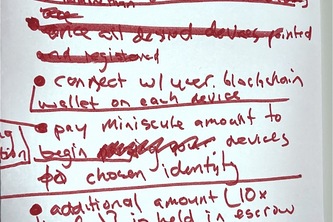 once all desired devices pointed
and registered
• connect w/ user blockchain
wallet on each device
• pay miniscule amount to
begin devices
chosen identity
• additional amount (10x
is held in escrow